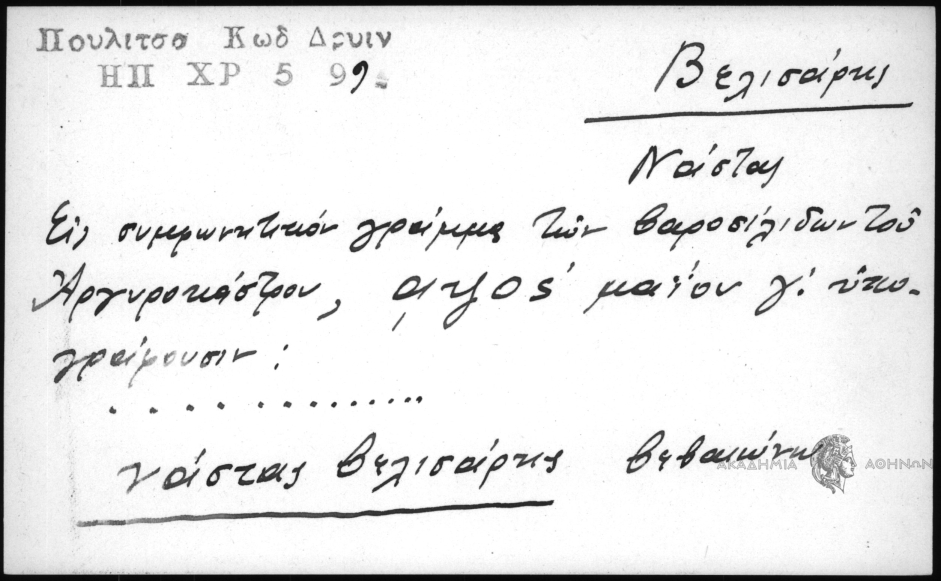 Πουλιτσα Κωδ Δρυιν
ΗΠ ΧΡ 5 99
Βελισάρης
Νάστας
Εἰς συμφωνητικόν γράμμα τῶν βαροσιλιδων τοῦ
Ἀργυροκάστρου, μαΐου γ΄. ὑπο-
γράφουσιν :
. . . . . . . . . . . . . . .
νάστας βελισάρης βεβαιώνω
ΑΚΑΔΗΜΙΑ ΑΘΗΝΩΝ